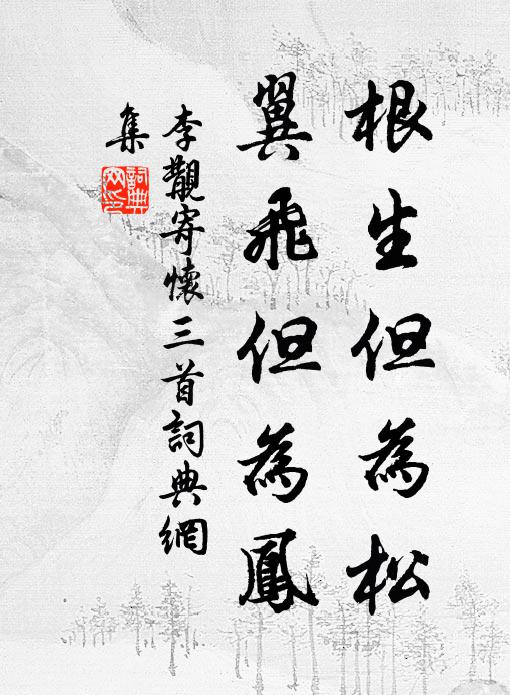 根生但為松
翼飛但為鳳
李覯寄懷三首詞典網
集
詞典
網